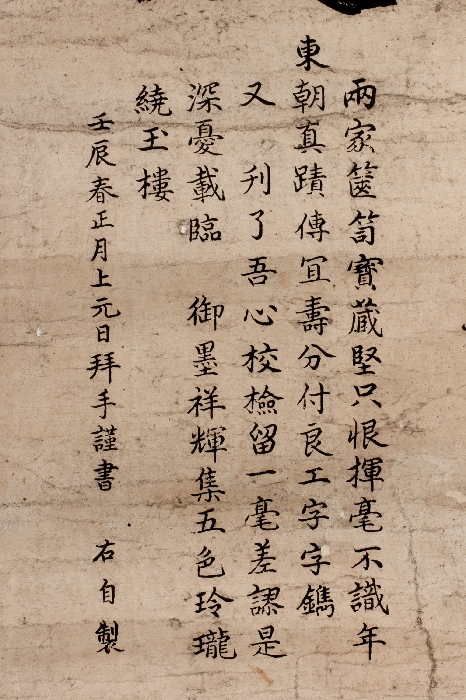 兩家篋笥寶蔵堅只恨揮毫不識年
東朝真蹟傳冝壽分付良工字字鐫
又 刋了吾心校檢留一毫差謬是
深憂載臨 御墨祥輝集五色玲瓏
繞玉樓
壬辰春正月上元日拜手謹書 右自製